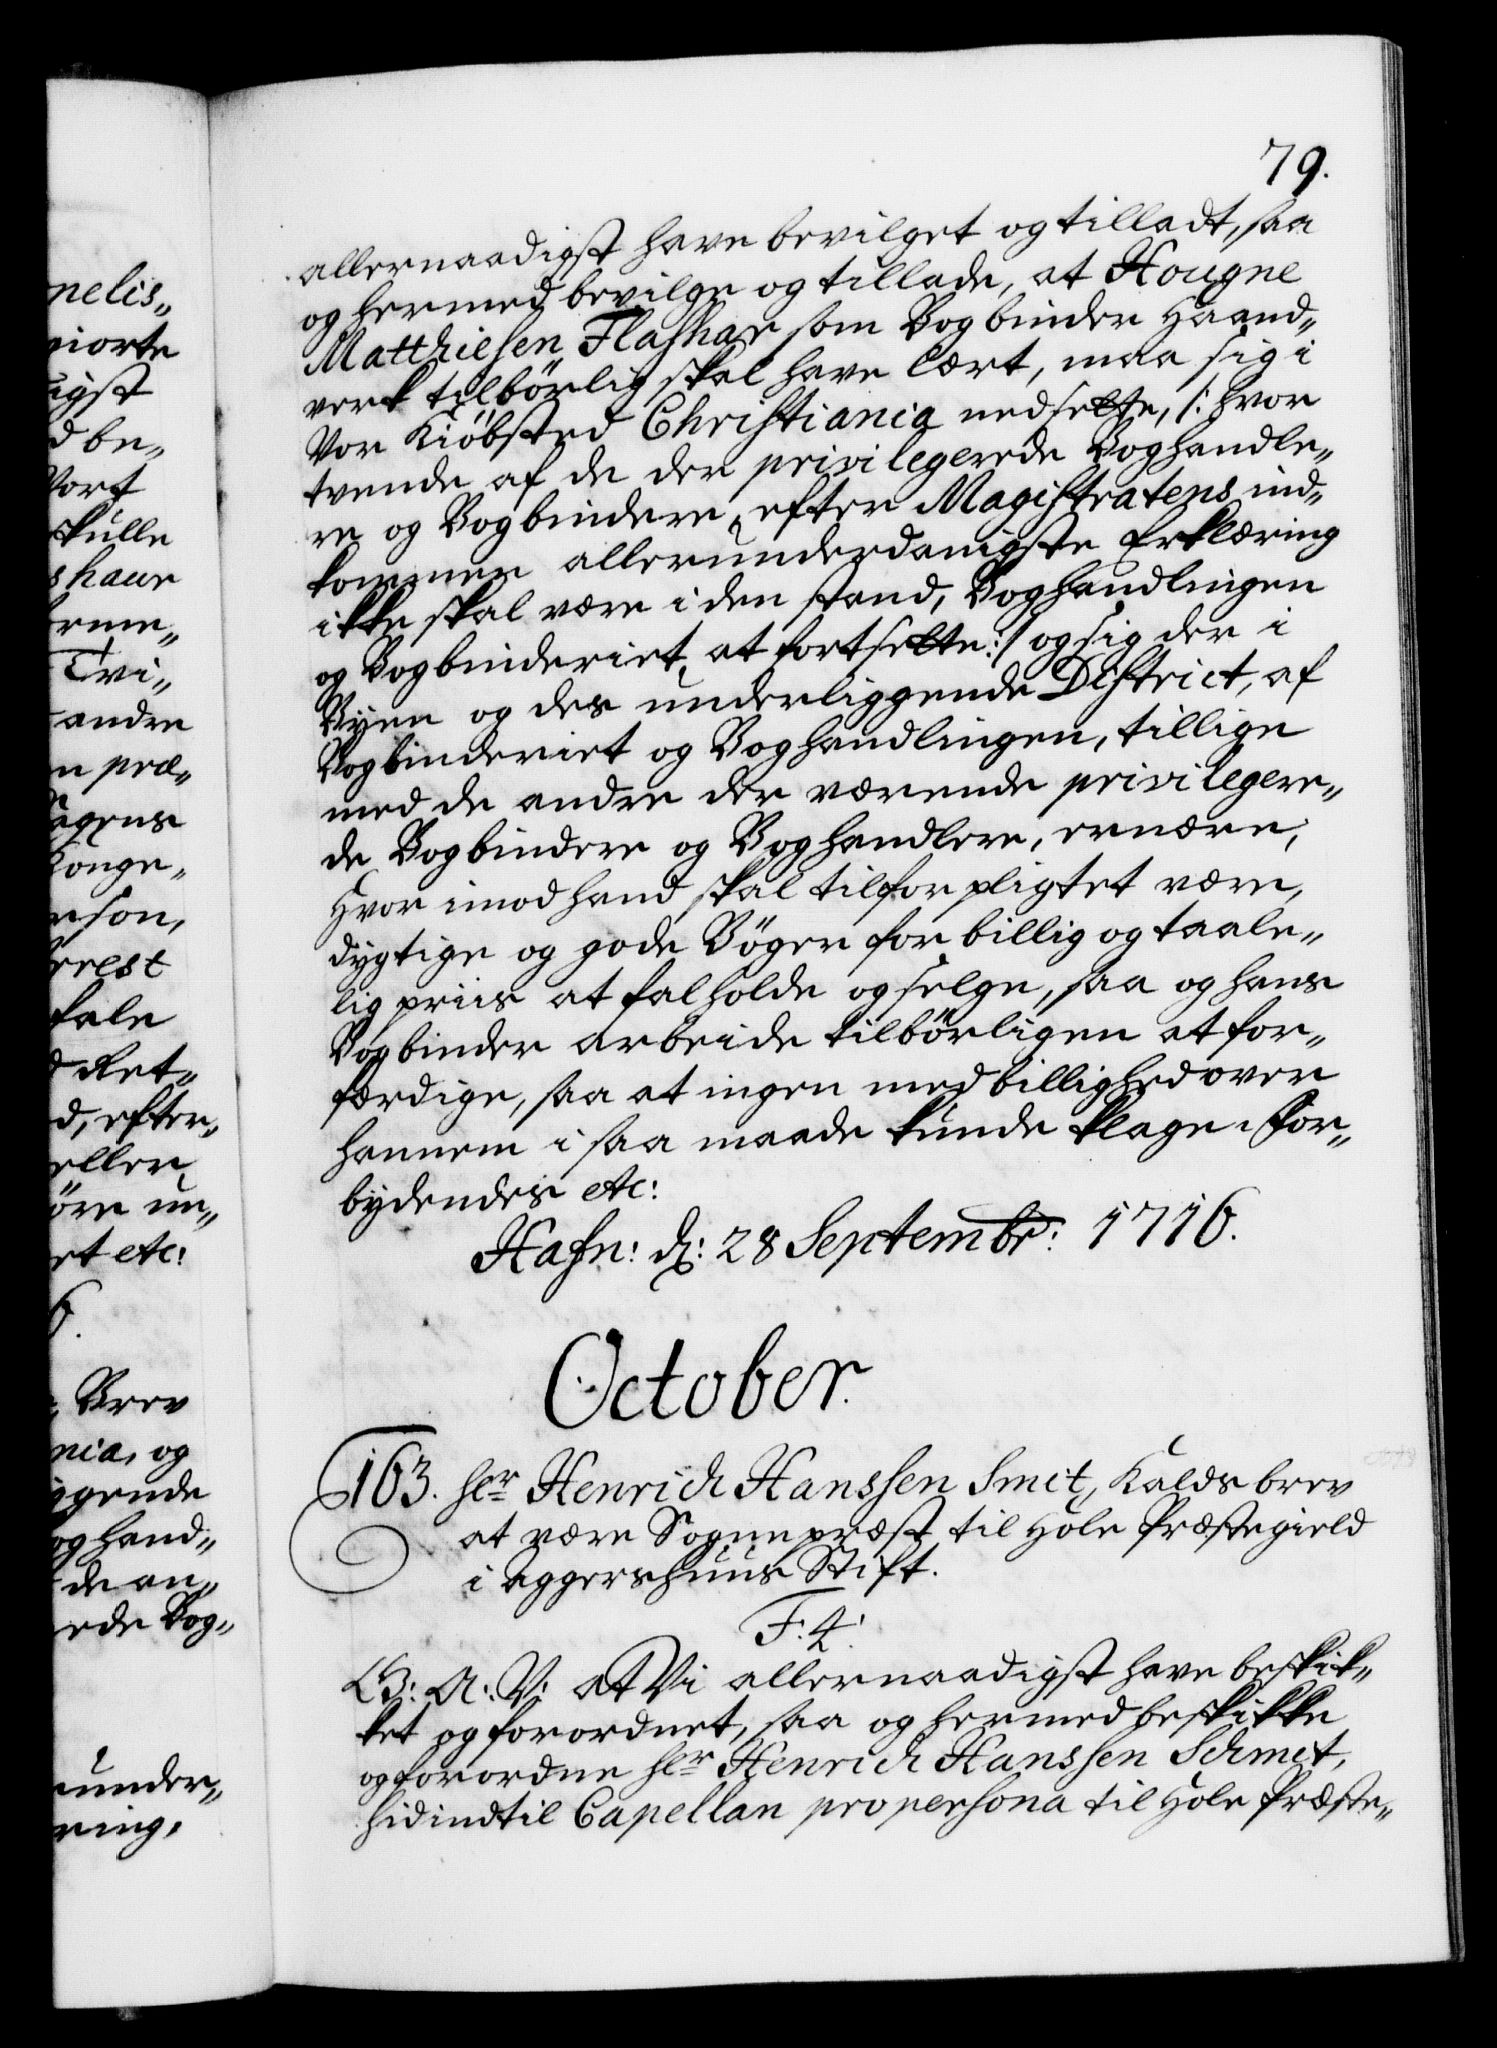 79.
allernaadigst have bevilget og tilladt, saa
og hermed bevilge og tillade, at Hougne
Matthiesen Flashar som Bogbinder Haand„
verk tilbörlig skal have lært, maa sig i
Vor Kiöbsted Christiania nedsette, /: hvor
tvende af de der privilegerede Boghandle„
re og Bogbindere, efter Magistratens ind„
kommen allerunderdanigste Erklæring
ikke skal være i den stand, Boghandlingen
og Bogbinderiet at fortsette :/ og sig der i
Byen og des underliggende District, af
Bogbinderiet og Boghandlingen, tillige
med de andre der værende privilegere„
de Bogbindere og Boghandlere, ernære;
Hvor imod hand skal tilforpligtet være,
dygtige og gode Böger for billig og taale„
lig priis at falholde og selge, saa og hans
Bogbinder arbeide tilbörligen at for„
færdige, saa at ingen med billighed over
hannem i saa maade kunde klage. For„
bydendes etc:
Hafn: d: 28 Septembr: 1716.
October.
163. Hr Henrich Hanssen Smit, Kalds brev
at være Sogneprest til Hole Præstegield
i Aggershuus Stift.
F. 4.
G: A: V: At Vi allernaadigst have beskik„
ket og forordnet, saa og hermed beskikke
og forordne Hr Henrich Hanssen Schmit,
hidindtil Capellan pro persona til Hole Præste„
nelis„
giorte
igst
d be„
Vort
skulle
s haver
orme„
Tvi„
andre
n præ„
agens
Konge„
rson,
erest
fale
d Ret„
d, efter„
eller
öre un„
et etc:
6.
Brev
nia, og
iggende
og hand„
de an„
rede Bog„
under„
ring,